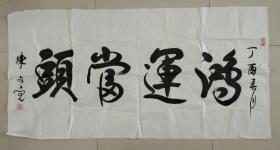 丁酉春月
鴻運當頭